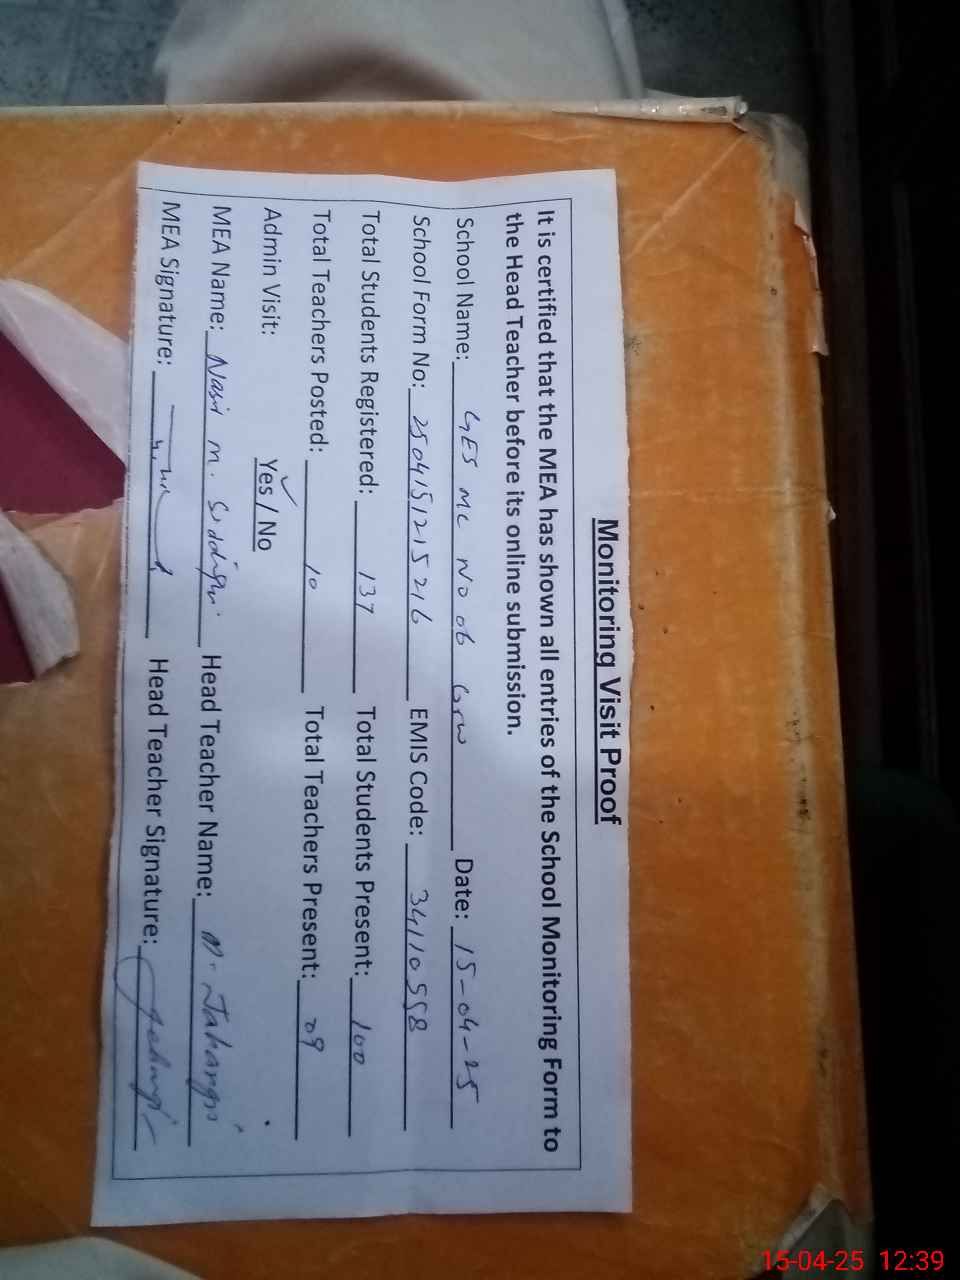 Monitoring Visit Proof
It is certified that the MEA has shown all entries of the School Monitoring Form to
the Head Teacher before its online submission.
School Name: GES MC NO 06 Grw Date: 15-04-25
School Form No: 2504151215216 EMIS Code: 34110558
Total Students Registered: 137 Total Students Present: 100
Total Teachers Posted: 10 Total Teachers Present: 09
Admin Visit: Yes / No
MEA Name: Nasir M. Siddiqui Head Teacher Name: M. Jahangir
MEA Signature: Head Teacher Signature:
15-04-25 12:39